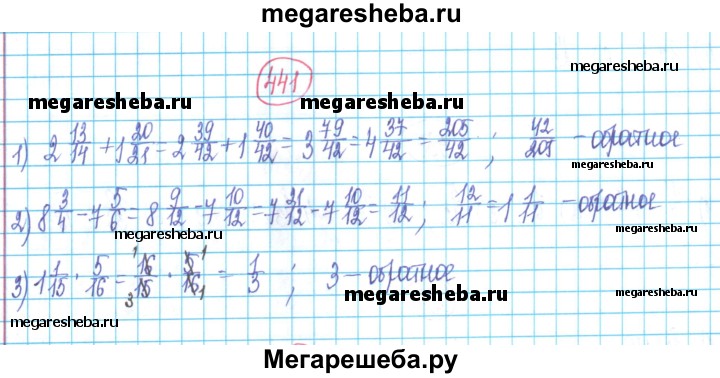 megaresheba.ru
441
megaresheba.ru megaresheba.ru megaresheba.ru
1) 2 13/14 + 1 20/21 = 2 39/42 + 1 40/42 = 3 79/42 = 4 37/42 = 205/42 ; 42/205 - обратное
2) 8 3/4 - 7 5/6 = 8 9/12 - 7 10/12 = 7 21/12 - 7 10/12 = 11/12 ; 12/11 = 1 1/11 - обратное
megaresheba.ru megaresheba.ru
3) 1 1/15 · 5/16 = 16/15 · 5/16 = 1/3 ; 3 - обратное
megaresheba.ru megaresheba.ru
Мегарешеба.ру